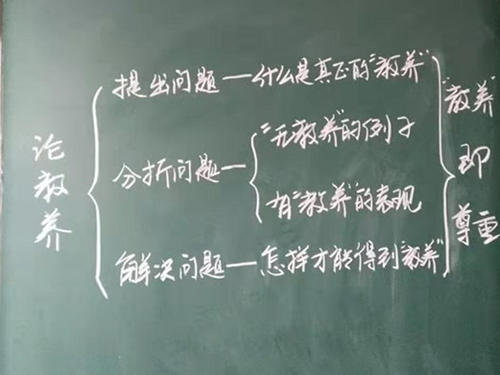 论教养
提出问题—什么是真正的"教养"
分析问题—
"无教养"的例子
有"教养"的表现
解决问题—怎样才能得到"教养"
"教养"即尊重